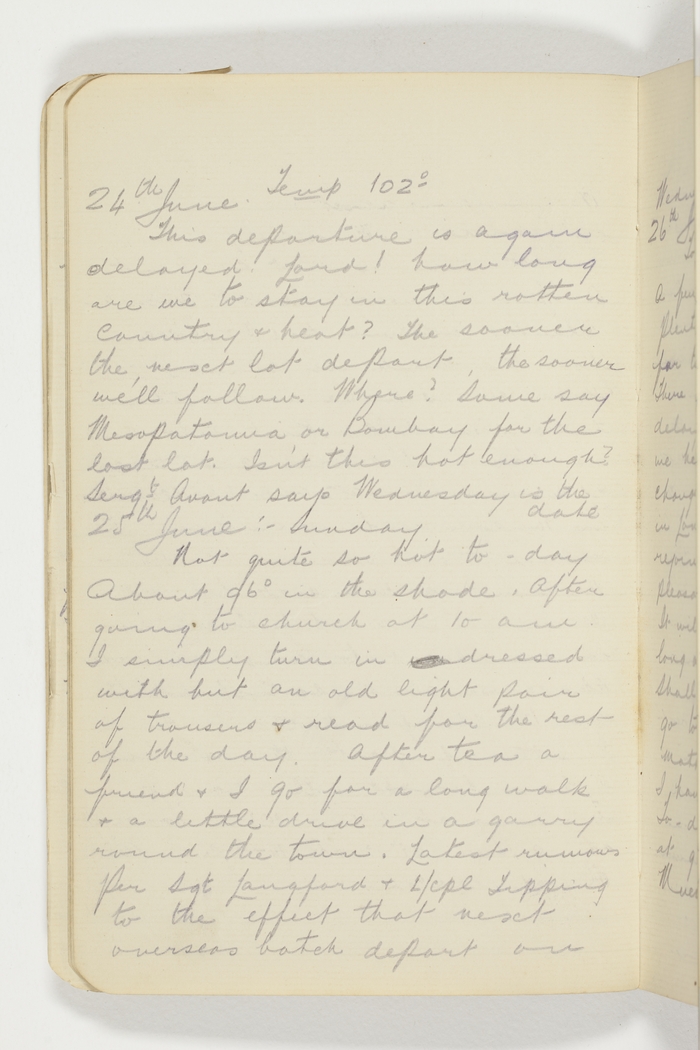 24th June. Temp 102°
This departure is again
delayed! Lord! how long
are we to stay in this rotten
country & heat? The sooner
the next lot depart, the sooner
we'll follow. Where? Some say
Mesopatamia or Bombay for the
last lot. Isn't this hot enough?
Sergt Avant says Wednesday is the
date
25th June :- Sunday
Not quite so hot to-day
About 96° in the shade. After
going to church at 10 am.
I simply turn in dressed
with but an old light pair
of trousers & read for the rest
of the day. After tea a
friend & I go for a long walk
& a little drive in a garry
round the town. Latest rumours
per Sgt Langford & L/cpl Tipping
to the effect that next
overseas batch depart on
26th